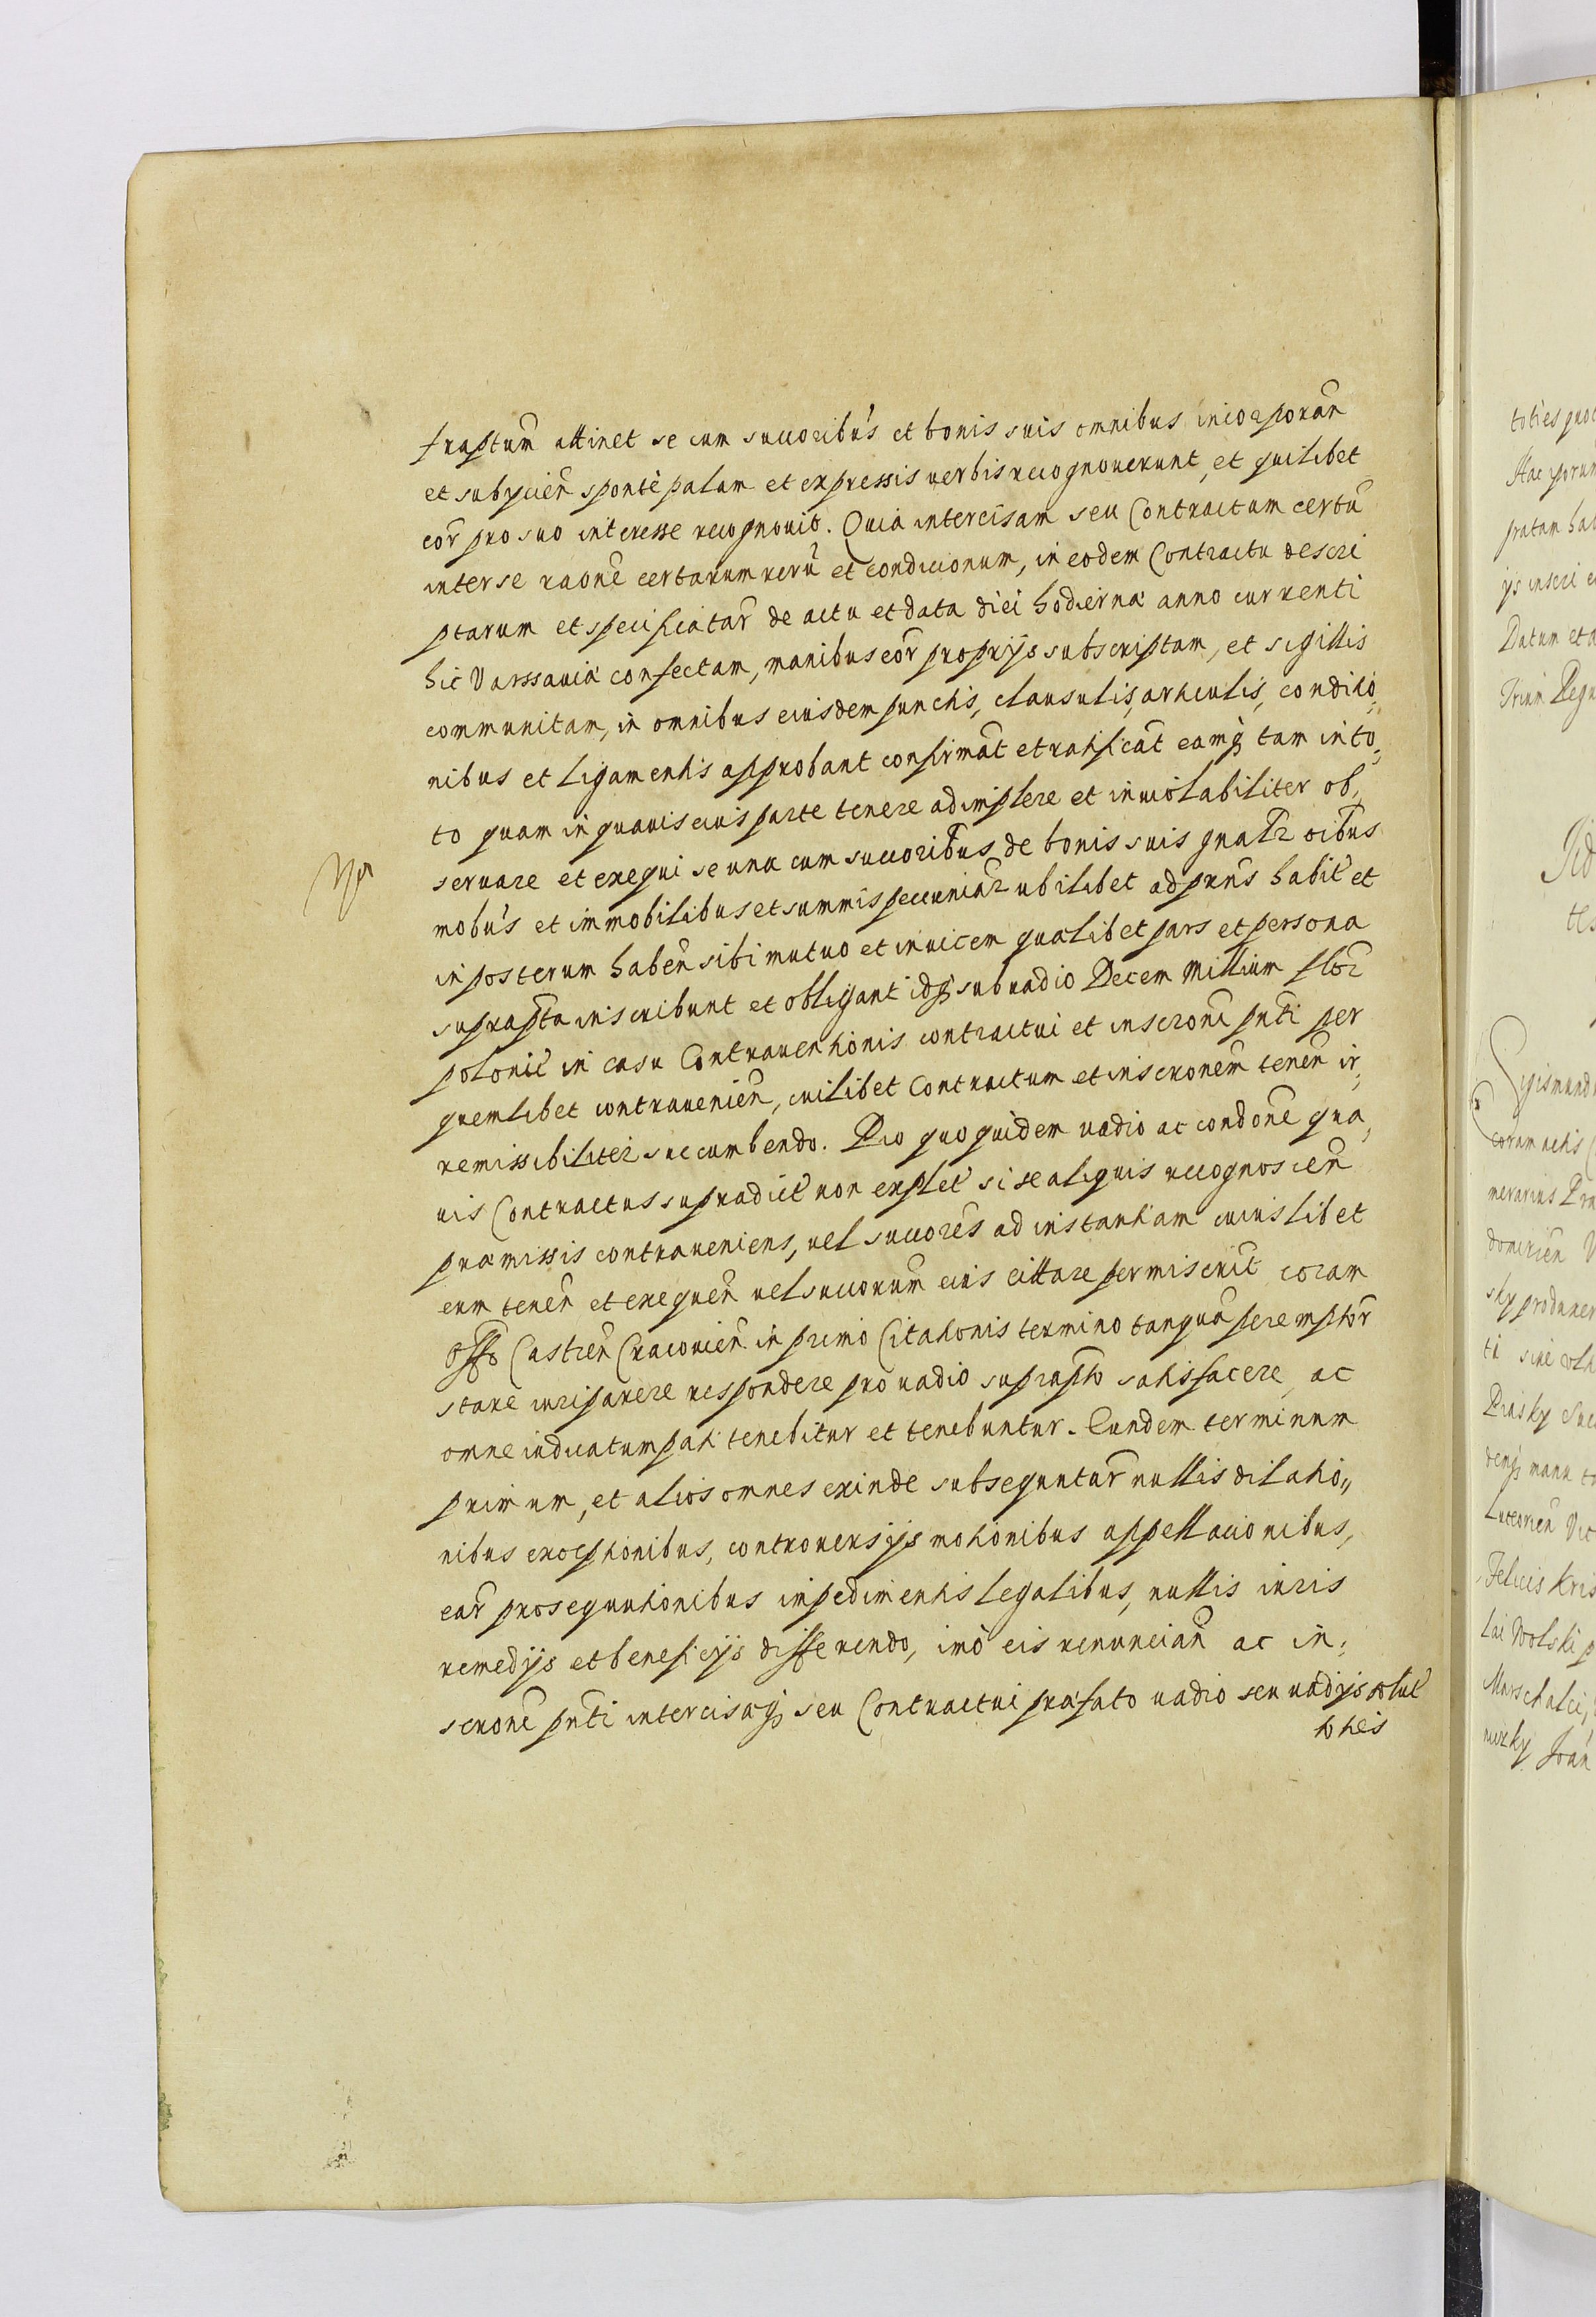 fraptum attinet se cum succoribus et bonis suis omnibus incorporan̄
et subycien̄ sponte palam et expressis uerbis recognouerunt, et quilibet
eor̄ pro suo interesse recognouit. Quia intercisam seu Contractum certū
inter se raōne certarum rerū et condicionum, in eodem Contractu descri
ptarum et specificatar̄ de actu et data diei hodierna anno currenti
hic Varssauia confectam, manibus eor̄ proprijs subscriptam, et sigillis
communitam, in omnibus eiusdem punctis, clausulis, articulis, conditio,
nibus et ligamentis approbant confirmāt et ratificāt eamq₃ tam in to,
to quam in quauis eius parte tenere adimplere et inuiolabiliter ob,
seruare et exequi se una cum succoribus de bonis suis gnalr oibus
mobus et immobilibus et summis pecuniar ubilibet ad prns habit et
in posterum haben̄ sibi mutuo et inuicem qualibet pars et persona
suprapta inscribunt et obligant idq₃ sub uadio Decem Millium flor
polonic in casu Contrauentionis contractui et inscrōni pnti per
quemlibet contrauenien̄, cuilibet Contractum et inscronem tenen̄ ir,
remissibiliter succumbendo. Pro quo quidem uadio ac condōne qua,
uis Contractus supradict non explet si se aliquis recognoscen̄
præmissis contraueniens, uel succores ad instantiam cuiuslibet
eum tenen̄ et exequen̄ uel succorum eius cittare permiserit coram
Offo Castren̄ Cracouien̄ in primo Citationis termino tanquā peremptor̄
stare iuri parere respondere pro uadio suprapto satisfacere, ac
omne iudicatum pati tenebitur et tenebuntur. Eundem terminum
primum, et alios omnes exinde subsequuntur̄ nullis dilatio,,
nibus exceptionibus, controuersijs motionibus appellacionibus,
ear̄ prosequutionibus impedimentis legalibus, nullis iuris
remedijs et beneficijs differendo, imò eis renuncian̄ ac in,
scrone pnti intercisaq₃ seu Contractui præfato uadio seu uadijs solut
toties